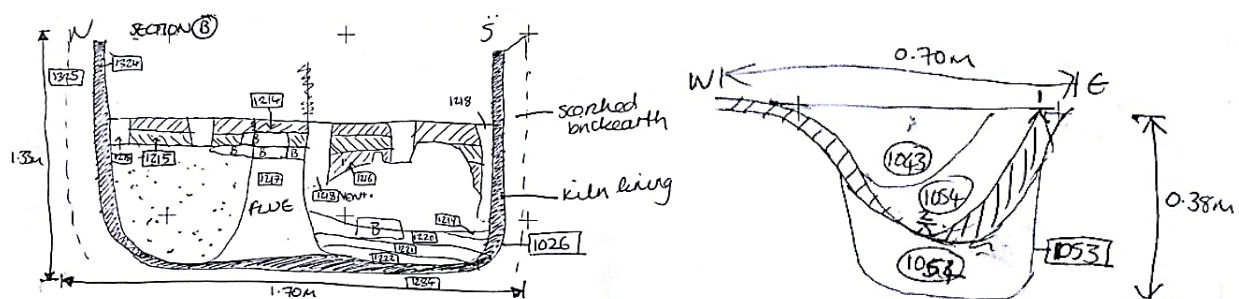 N SECTION B S
1325
1324
1214
1218
scorched
brickearth
1.33m
1215
B
B B B
1217
1216
1218 VENT.
FLUE
kiln lining
B
1219
1220
1221
1222
1026
1284
1.70m
0.70m
W E
1043
1054
0.38m
1053